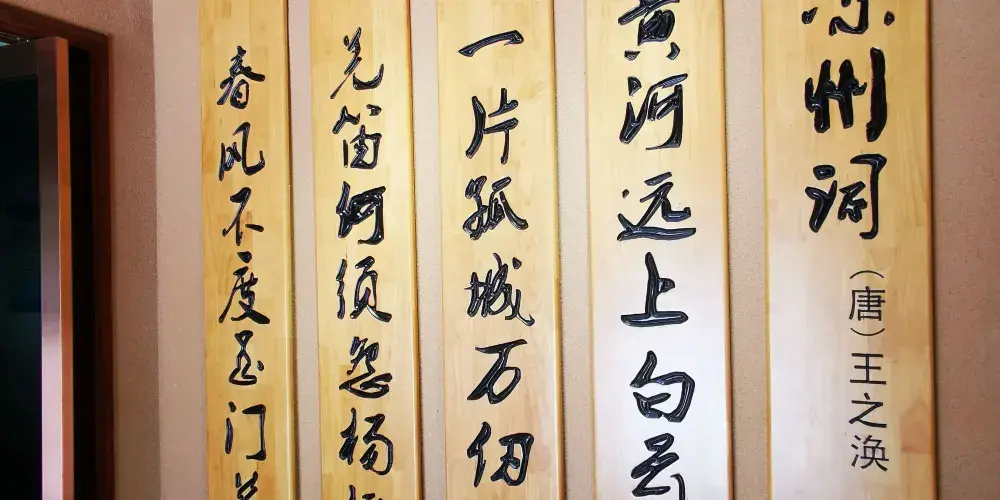 凉州词
（唐）王之涣
黄河远上白云
一片孤城万仞
羌笛何须怨杨
春风不度玉门